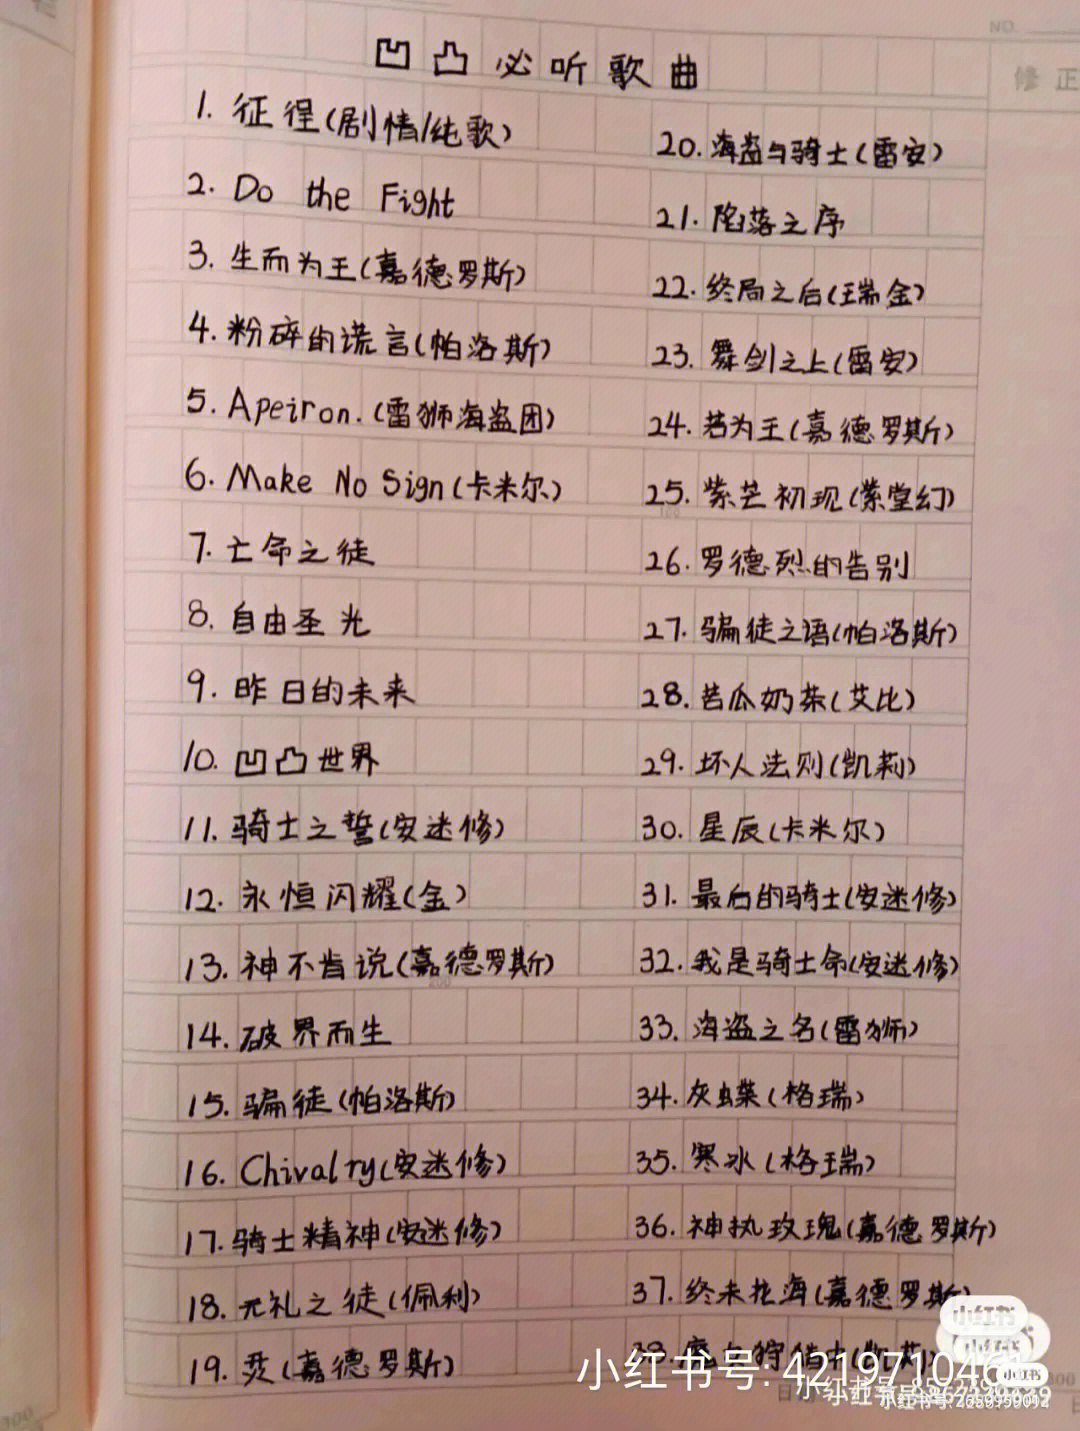 凹凸必听歌曲
1. 征程(剧情/纯歌)
2. Do the Fight
3. 生而为王(嘉德罗斯)
4. 粉碎的谎言(帕洛斯)
5. Apeiron.(雷狮海盗团)
6. Make No Sign(卡米尔)
7. 亡命之徒
8. 自由圣光
9. 昨日的未来
10. 凹凸世界
11. 骑士之誓(安迷修)
12. 永恒闪耀(金)
13. 神不肯说(嘉德罗斯)
14. 破界而生
15. 骗徒(帕洛斯)
16. Chivalry(安迷修)
17. 骑士精神(安迷修)
18. 无礼之徒(佩利)
19. 烎(嘉德罗斯)
20. 海盗与骑士(雷安)
21. 陷落之序
22. 终局之后(瑞金)
23. 舞剑之上(雷安)
24. 若为王(嘉德罗斯)
25. 紫芒初现(紫堂幻)
26. 罗德烈的告别
27. 骗徒之语(帕洛斯)
28. 苦瓜奶茶(艾比)
29. 坏人法则(凯莉)
30. 星辰(卡米尔)
31. 最后的骑士(安迷修)
32. 我是骑士命(安迷修)
33. 海盗之名(雷狮)
34. 灰蝶(格瑞)
35. 寒冰(格瑞)
36. 神执玫瑰(嘉德罗斯)
37. 终未花海(嘉德罗斯)
38.
NO.
修正
200
小红书
小红书号: 421971046